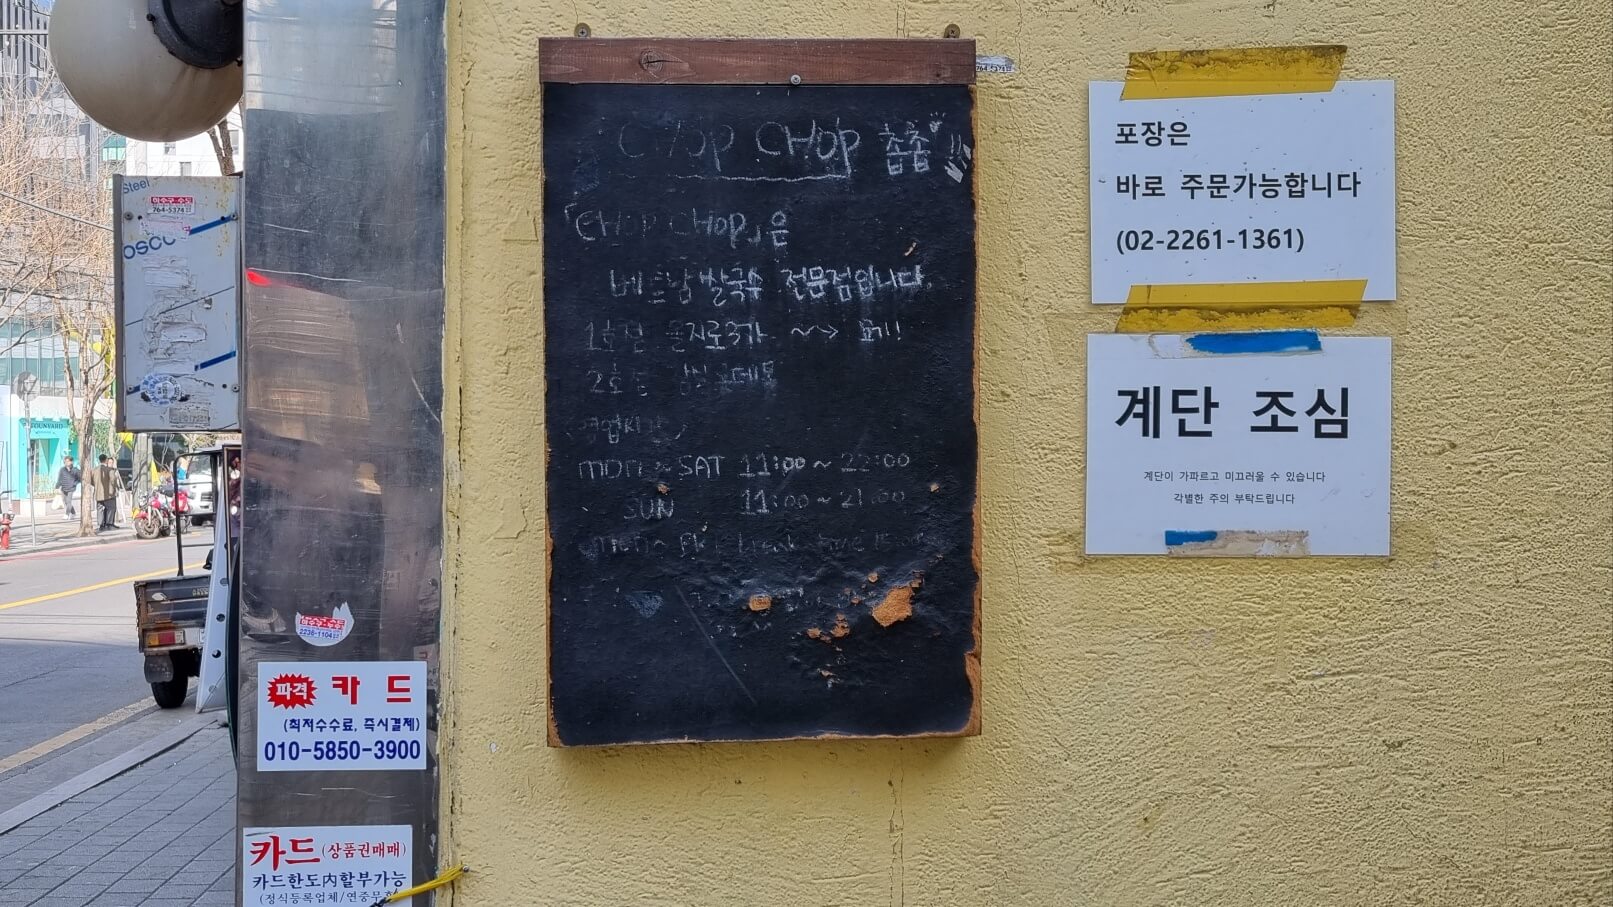 Steel
하수구·수도
764-5374
OSCO
하수구·수도
2236-1104
파격 카 드
(최저수수료, 즉시결제)
010-5850-3900
카드(상품권매매)
카드한도內할부가능
CHOP CHOP 촙촙!!
「CHOP CHOP」은
베트남 쌀국수 전문점입니다.
1호점 을지로3가 ~→ 여기!!
2호점
영업시간
MON ~ SAT 11:00 ~ 22:00
SUN 11:00 ~ 21:00
MON~FRI break time
764-5374
포장은
바로 주문가능합니다
(02-2261-1361)
계단 조심
계단이 가파르고 미끄러울 수 있습니다
각별한 주의 부탁드립니다